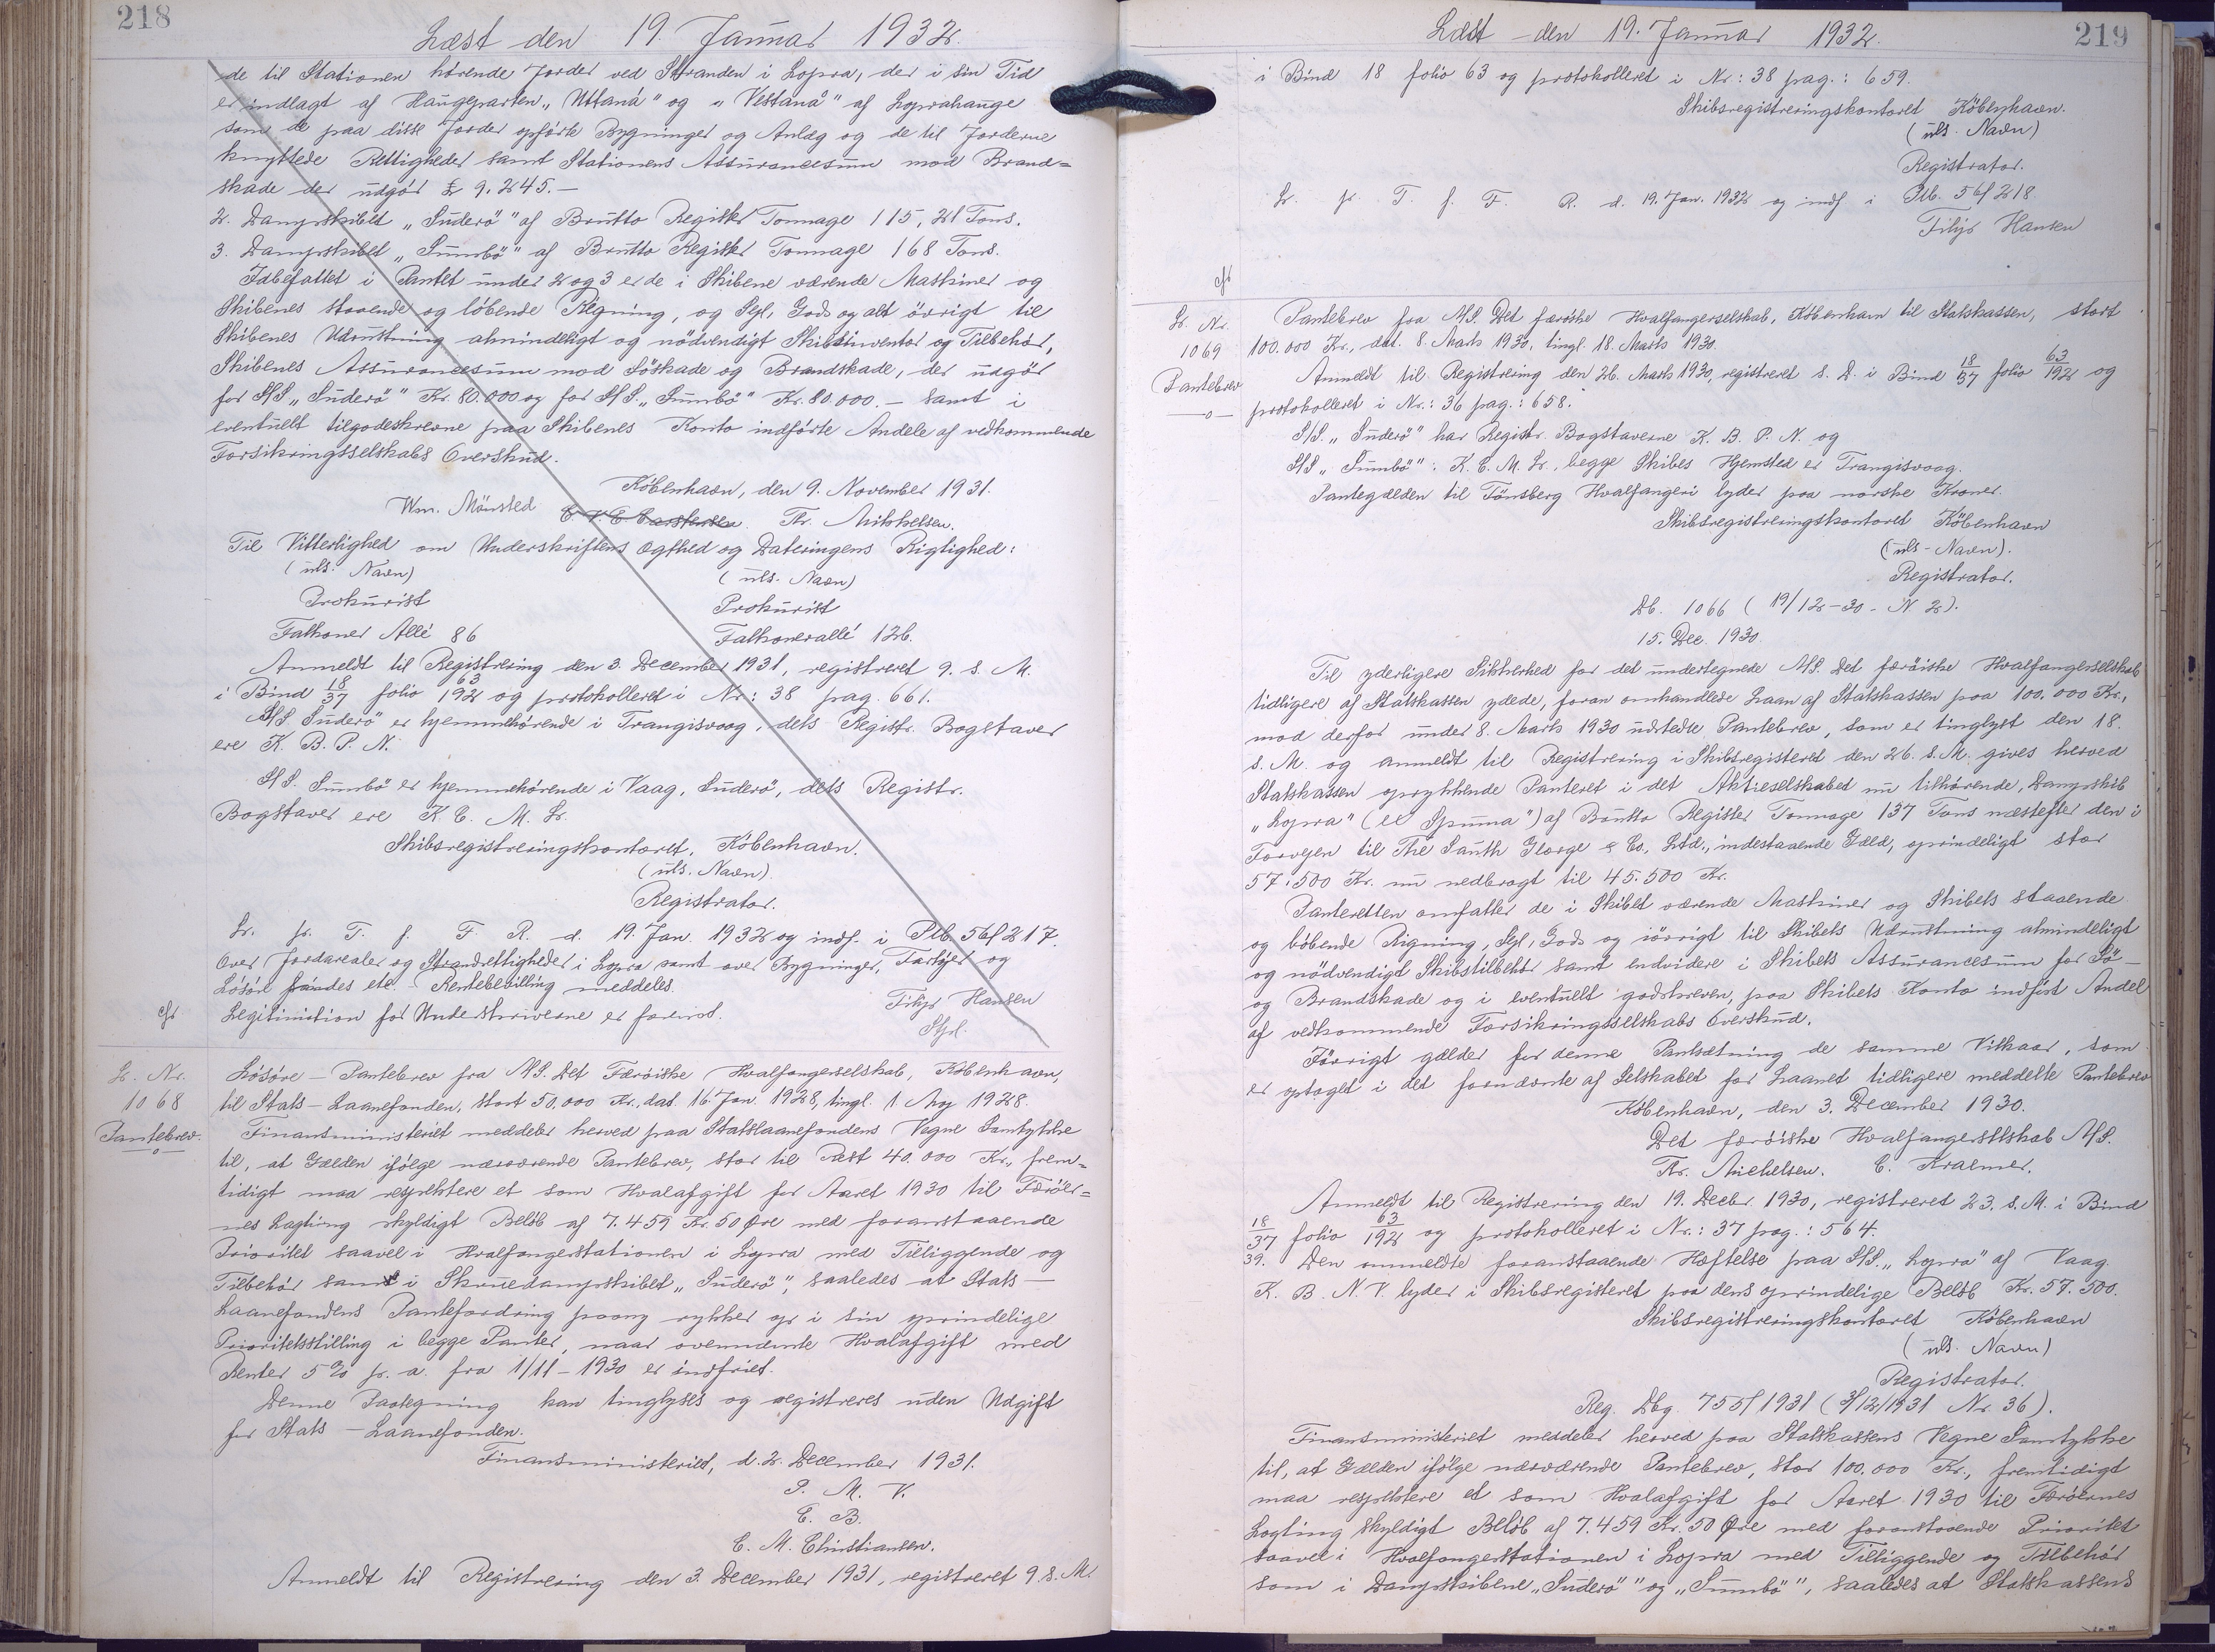 218
Læst den 19. Januar 1932.
de til Stationen hørende Jorder ved Stranden i Lopra, der i sin Tid
er indlagt af Haugeparten „Uttaná" og „Vestaná" af Loprahauge
som de paa disse Jorder opførte Bygninger og Anlæg og de til Jorderne
knyttede Rettigheder samt Stationens Assurancesum mod Brand=
skade der udgör £ 9.245.—
2. Dampskibet „Suderö" af Brutto Register Tonnage 115,21 Tons.
3. Dampskibet „Sumbö" af Brutto Register Tonnage 168 Tons.
Idbefattet i Pantet under 2 og 3 er de i Skibene værende Maskiner og
Skibenes staaende og löbende Regning, og Sejl, Gods og alt övrigt til
Skibenes Udrustning almindeligt og nödvendigt Skibsinventar og Tilbehör,
Skibenes Assurancesum mod Söskade og Brandskade, der udgör
for S/S „Suderö" Kr. 80.000 og for S/S. „Sumbö" Kr. 80.000.— samt i
eventuelt tilgodeskrevne paa Skibenes Konto indförte Andele af vedkommende
Forsikringsselskabs Overskud.
København, den 9. November 1931.
Wm. Mönsted C. V. C. Carstensen. Th. Mikkelsen.
Til Vitterlighed om Underskriftens Ægthed og Dateringens Rigtighed:
(uls. Navn) (uls. Navn)
Prokurist Prokurist
Falkoner Allé 86 Falkonerallé 126.
Anmeldt til Registrering den 3. December 1931, registreret 9. s. M.
i Bind 18/37 folio 63/192 og protokolleret i Nr: 38 pag. 661.
S/S Suderö" er hjemmehörende i Trangisvaag, dets Registr. Bogstaver
ere K. B. P. N.
S/S. Sumbö er hjemmehörende i Vaag, Suderö, dets Registr.
Bogstaver ere K. C. M. L.
Skibsregistreringskontoret, København.
(uls. Navn).
Registrator.
L. p. T. f. F. R. d. 19. Jan. 1932 og indf. i Ptb. 56f 217.
Over Jordarealer og Strandrettigheder i Lopra samt over Bygninger, Fartöjer og
Lösöre findes etc. Rentebevilling meddeles.
Legitimation for Underskriverne er forevist.
Filip Hansen
Sfp.
cfr
L. Nr.
1068
Pantebrev.
—o—
Lösöre — Pantebrev fra A/S. Det Færöiske Hvalfangerselskab, København,
til Stats-Laanefonden, stort 50.000 Kr., dat. 16. Jan. 1928, tingl. 1. Aug 1928.
Finansministeriet meddeler herved paa Statslaanefondens Vegne Samtykke
til, at Gælden ifölge nærværende Pantebrev, stor til Rest 40.000 Kr., frem=
tidigt maa respektere et som Hvalafgift for Aaret 1930 til Færöer=
nes Lagting skyldigt Belöb af 7.459 Kr. 50 Øre med foranstaaende
Prioritet saavel i Hvalfangerstationen i Lopra med Tilliggende og
Tilbehör samt i Skruedampskibet „Suderö", saaledes at Stats —
Laanefondens Pantefordring paany rykker op i sin oprindelige
Prioritetsstilling i begge Panter, naar ovennævnte Hvalafgift med
Renter 5% p. a. fra 1/11 - 1930 er indfriet.
Denne Paategning kan tinglyses og registreres uden Udgift
for Stats — Laanefonden.
Finansministeriet, d. 2. December 1931.
P. M. V.
E. B.
C. M. Christiansen.
Anmeldt til Registrering den 3. December 1931, registreret 9. s. M.
Læst den 19. Januar 1932.
219
i Bind 18 folio 63 og protokolleret i Nr: 38 pag.: 659.
Skibsregistreringskontoret København.
(uls. Navn)
Registrator.
L. p. T. f. F. R. d. 19. Jan. 1932 og indf. i Ptb. 56f 218.
Filip Hansen
cfr
L. Nr.
1069
Pantebrev
—o—
Pantebrev fra A/S. Det færöiske Hvalfangerselskab, København til Statskassen, stort
100.000 Kr., dat. 8. Marts 1930, tingl. 18. Marts 1930.
Anmeldt til Registrering den 26. Marts 1930, registreret s. D. i Bind 18/37 folio 63/192 og
protokolleret i Nr.: 36 pag.: 658.
S/S. „Suderö" har Registr. Bogstaverne K. B. P. N. og
S/S „Sumbö": K. C. M. L., begge Skibes Hjemsted er Trangisvaag.
Pantegælden til Tönsberg Hvalfangeri lyder paa norske Kroner.
Skibsregistreringskontoret København
(uls - Navn).
Registrator.
Db. 1066 (19/12-30 - N 2).
15. Dec. 1930.
Til yderligere Sikkerhed for det undertegnede A/S. Det færöiske Hvalfangerselskab
tidligere af Statskassen ydede, foran omhandlede Laan af Statskassen paa 100.000 Kr.,
mod derfor under 8. Marts 1930 udstedte Pantebrev, som er tinglyst den 18.
s. M. og anmeldt til Registrering i Skibsregisteret den 26. s. M. gives herved
Statskassen oprykkende Panteret i det Aktieselskabet nu tilhörende, Dampskib
„Lopra" (ex Spuma") af Brutto Register Tonnage 137 Tons næstefter den i
Forvejen til The South George & Co. Ltd., indestaaende Gæld, oprindeligt stor
57.500 Kr. nu nedbragt til 45.500 Kr.
Panteretten omfatter de i Skibet værende Maskiner og Skibets staaende
og löbende Rigning, Sejl, Gods og iövrigt til Skibets Udrustning almindeligt
og nödvendigt Skibstilbehör samt endvidere i Skibets Assurancesum for Sö —
og Brandskade og i eventuelt godskreven, paa Skibets Konto indfört Andel
af vedkommende Forsikringsselskabs Overskud.
Iövrigt gælder for denne Pantsætning de samme Vilkaar, som
er optaget i det fornævnte af Selskabet for Laanet tidligere meddelte Pantebrev
København, den 3. December 1930.
Det færöiske Hvalfangerselskab A/S.
Th. Michelsen. C. Kraemer.
Anmeldt til Registrering den 19. Decbr. 1930, registreret 23. s. M. i Bind
18/37 folio 63/192 og protokolleret i Nr.: 37 pag.: 564.
39. Den anmeldte foranstaaende Hæftelse paa S/S. „Lopra" af Vaag.
K. B. N. V. lyder i Skibsregisteret paa dens oprindelige Belöb Kr. 57.500.
Skibsregistreringskontoret København
(uls. Navn)
Registrator.
Reg. Dbg. 755/1931 (3/12/1931 Nr. 36).
Finansministeriet meddeler herved paa Statskassens Vegne Samtykke
til, at Gælden ifölge nærværende Pantebrev, stor 100.000 Kr., fremtidigt
maa respektere et som Hvalafgift for Aaret 1930 til Færöernes
Lagting skyldigt Belöb af 7.459 Kr. 50 Øre med foranstaaende Prioritet
saavel i Hvalfangerstationen i Lopra med Tilliggende og Tilbehör
som i Dampskibene „Suderö" og „Sumbö", saaledes at Statskassens